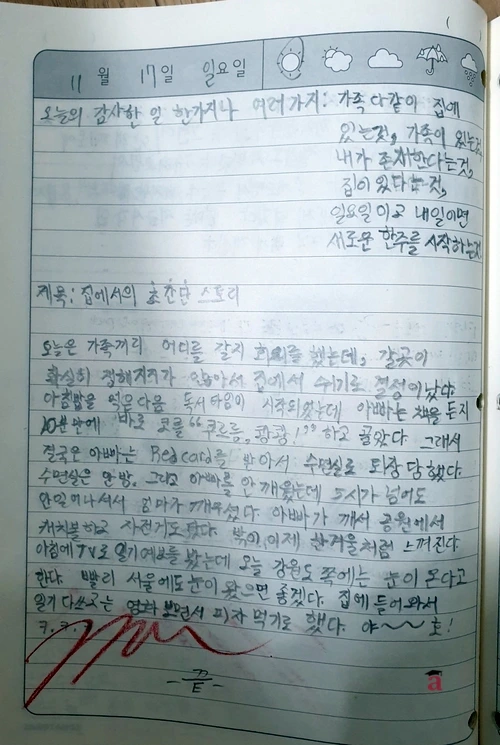 11 월 17 일 일 요일
오늘의 감사한 일 한가지나 여러가지: 가족 다같이 집에
있는것, 가족이 있는것,
내가 존재한다는것,
집이 있다는것,
일요일이고 내일이면
새로운 한주를 시작하는것
제목: 집에서의 초간단 스토리
오늘은 가족끼리 어디를 갈지 회의를 했는데, 갈곳이
확실히 정해지지가 않아서 집에서 쉬기로 결정이났다.
아침밥을 먹은다음 독서타임이 시작되었는데 아빠는 책을 든지
10분 안에 바로 코를 "쿠르릉, 쾅쾅!" 하고 골았다. 그래서
결국은 아빠는 Red card를 받아서 수면실로 퇴장 당했다.
수면실은 안방. 그리고 아빠를 안 깨웠는데 2시가 넘어도
안일어나셔서 엄마가 깨우셨다. 아빠가 깨서 공원에서
캐치볼하고 자전거도탔다. 밖이 이제 한겨울처럼 느껴진다.
아침에 TV로 일기예보를 봤는데 오늘 강원도 쪽에는 눈이 온다고
한다. 빨리 서울에도 눈이 왔으면 좋겠다. 집에 들어와서
일기 다쓰고는 영화 보면서 피자 먹기로 했다. 야~~ 호!
ㅋ.ㅋ.
-끝-
E
a